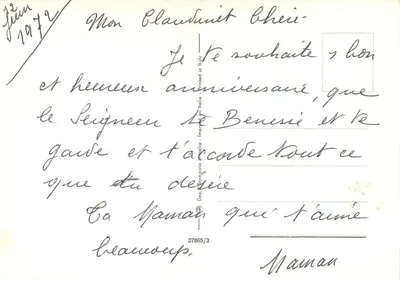 12
Juin
1972
Mon Claudinet Chéri-
Je te souhaite 1 bon
et heureux anniversaire, que
le Seigneur te Benesie et te
garde et t'accorde tout ce
que tu désire
Ta Maman qui t'aime
beaucoup.
Maman
37865/3